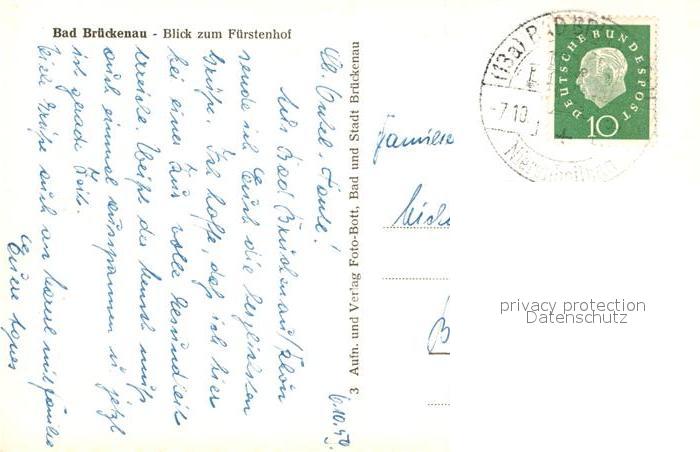 Bad Brückenau - Blick zum Fürstenhof
6.10.59.
Lb. Onkel u. Tante!
Aus Bad Brückenau/Rhön
sende ich Euch die herzlichsten
Grüße. Ich hoffe, daß ich hier
bei einer Kur volle Gesundheit
erreiche. Weißt du Mensch muß
auch einmal ausspannen u. jetzt
ist gerade Zeit.
Viele Grüße auch an mit Familie
Eure Agnes
3 Aufn. und Verlag Foto-Bott, Bad und Stadt Brückenau
Familie
(13a) BAD BR
-7.10.
DEUTSCHE BUNDESPOST
10
privacy protection
Datenschutz